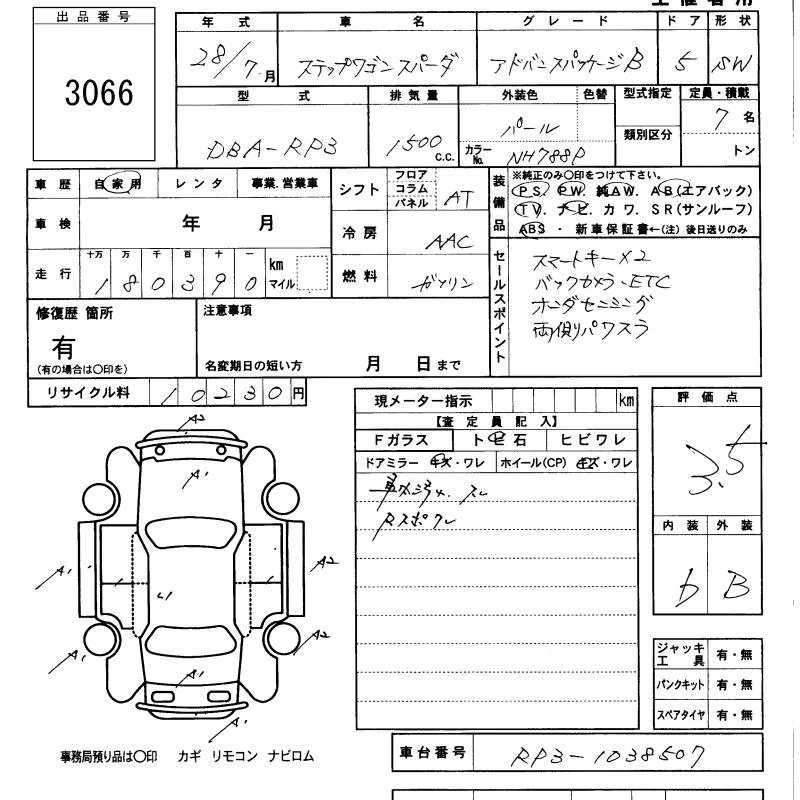 出品番号
3066
年 式 車 名 グ レ ー ド ド ア 形 状
28/7月 ステップワゴンスパーダ アドバンスパッケージB 5 SW
型 式 排 気 量 外装色 色替 型式指定 定員・積載
DBA-RP3 1500 C.C. パール 7名
カラーNo. NH788P 類別区分 トン
車 歴 自 家 用 レ ン タ 事業.営業車
シフト フロア コラム パネル AT
装備品 ※純正のみ〇印をつけて下さい。
PS. PW. 純AW. AB(エアバック)
TV. ナビ. カ ワ. SR(サンルーフ)
ABS ・ 新車保証書←(注)後日送りのみ
車 検 年 月
冷 房 AAC
走 行 十万 万 千 百 十 一
180390 km マイル
燃 料 ガソリン
セールスポイント
スマートキー×2
バックカメラ・ETC
ホンダセンシング
両側パワスラ
修復歴 箇所
有
(有の場合は〇印を)
注意事項
名変期日の短い方 月 日まで
リサイクル料 10230円
現メーター指示 km
【査 定 員 記 入】
Fガラス ト 石 ヒビワレ
ドアミラー キズ・ワレ ホイール(CP) キズ・ワレ
Rスポワレ
評 価 点
3.5
内 装 外 装
b B
A2
A1
A1
A2
A1
L1
A1
A2
A1
A2
ジャッキ工 具 有・無
パンクキット 有・無
スペアタイヤ 有・無
事務局預り品は〇印 カギ リモコン ナビロム
車台番号 RP3-1038507